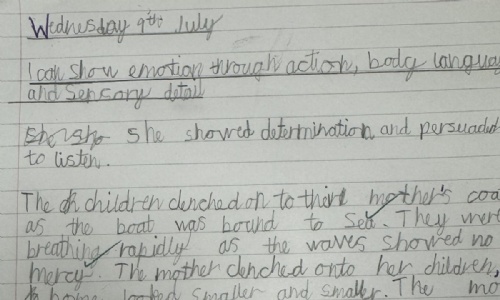 Wednesday 9th July
I can show emotion through action, body languag
and sensory detail
She showed determination and persuaded
to listen.
The children clenched on to their mother's coa
as the boat was bound to set. They were
breathing rapidly as the waves showed no
mercy. The mother clenched onto her children,
home looked smaller and smaller. The mo